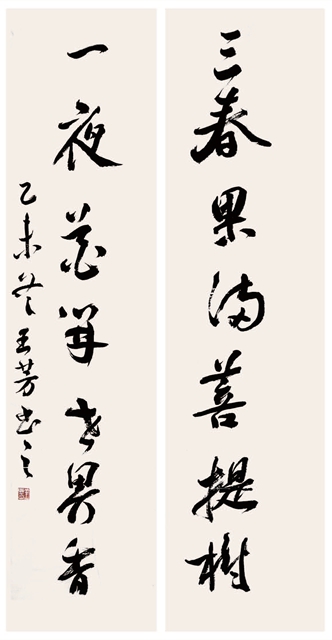 三春果满菩提樹
一夜花開世界香
乙未冬王芳书之